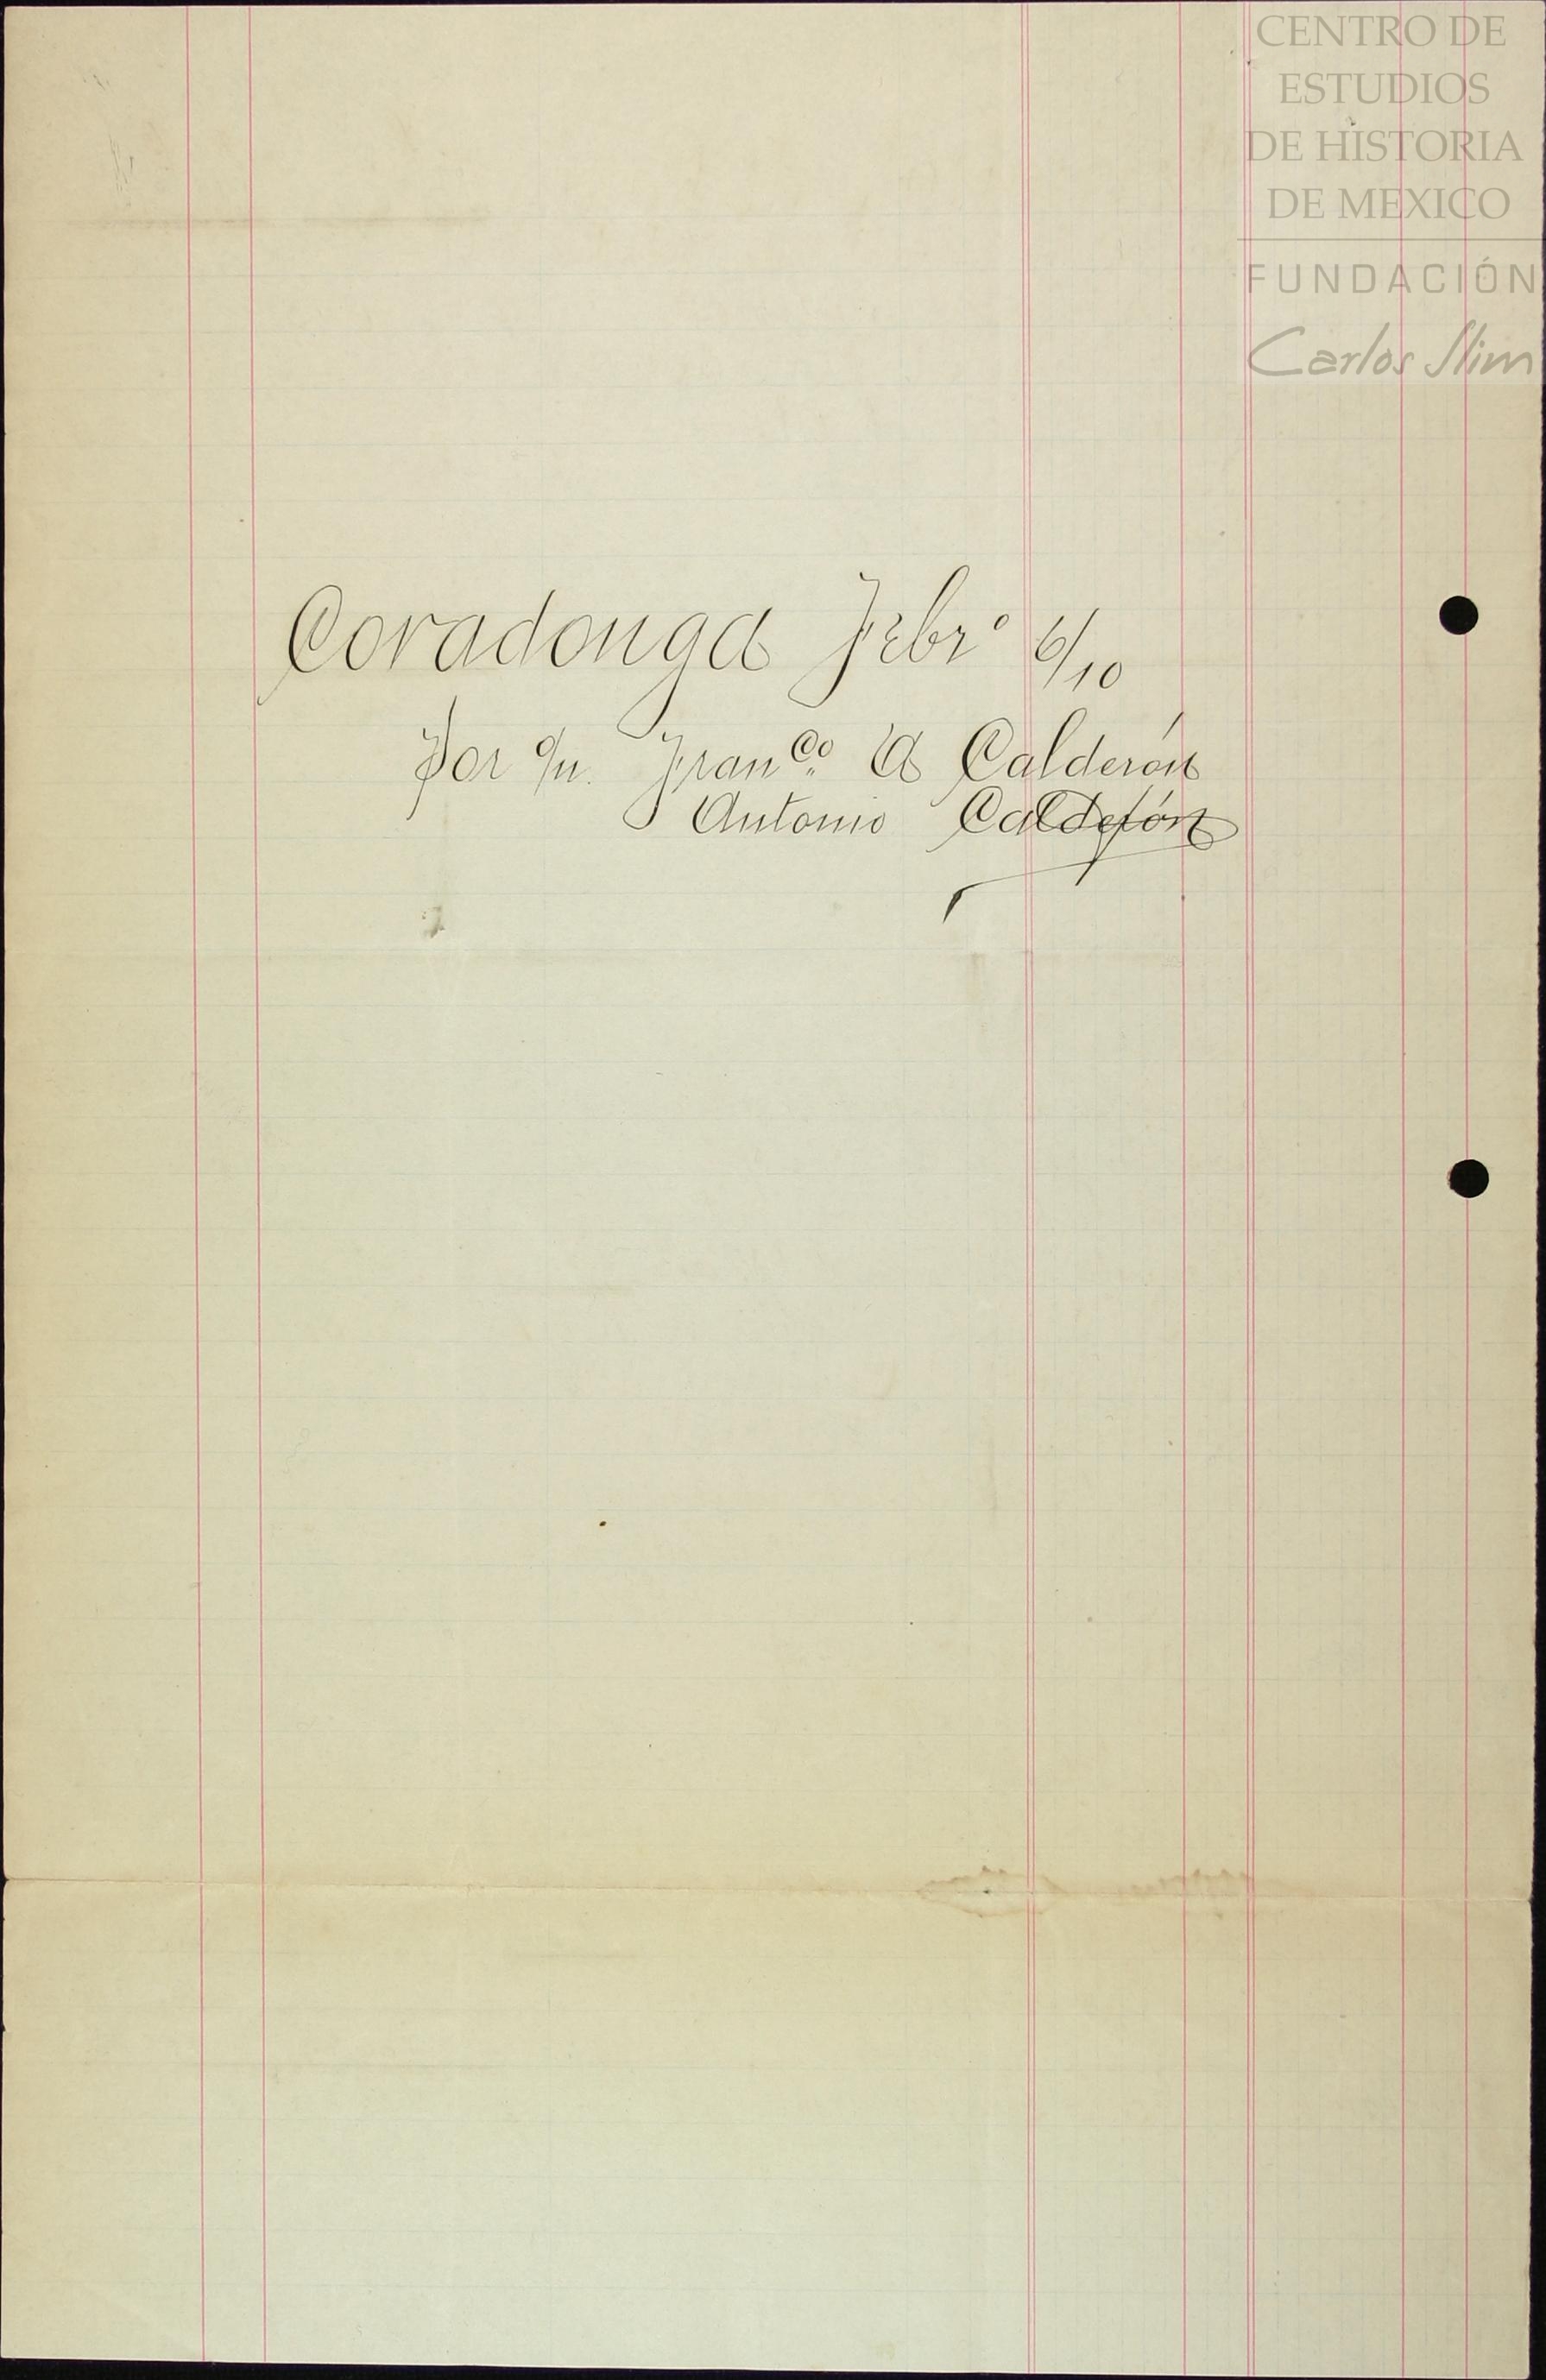 CENTRO DE
ESTUDIOS
DE HISTORIA
DE MEXICO
FUNDACIÓN
Carlos Slim
Covadonga Febrº 6/10
Por Franco. A Calderón
Antonio Calderón